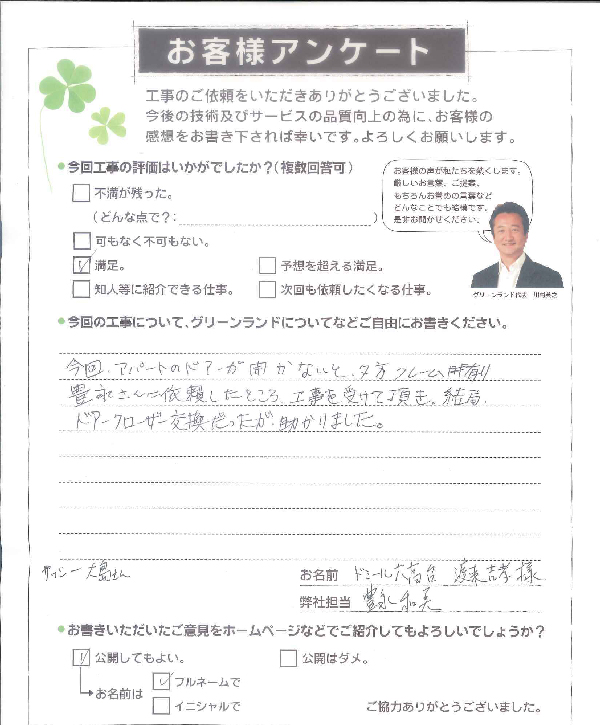 お客様アンケート
工事のご依頼をいただきありがとうございました。
今後の技術及びサービスの品質向上の為に、お客様の
感想をお書き下されば幸いです。よろしくお願いします。
●今回工事の評価はいかがでしたか？(複数回答可)
お客様の声が私たちを熱くします。
厳しいお言葉、ご提案、
もちろんお褒めの言葉など
どんなことでも結構です。
是非お聞かせください。
不満が残った。
(どんな点で?: )
可もなく不可もない。
満足。
予想を超える満足。
知人等に紹介できる仕事。
次回も依頼したくなる仕事。
グリーンランド代表
●今回の工事について、グリーンランドについてなどご自由にお書きください。
今回、アパートのドアーが開かないと、夕方クレーム
豊永さんに依頼したところ、工事を受けて頂き、結局、
ドアークローザー交換だったが、助かりました。
大島さん
お名前 ドミール大高台 吉孝 様
弊社担当 豊永和美
●お書きいただいたご意見をホームページなどでご紹介してもよろしいでしょうか？
公開してもよい。
公開はダメ。
お名前は
フルネームで
イニシャルで
ご協力ありがとうございました。